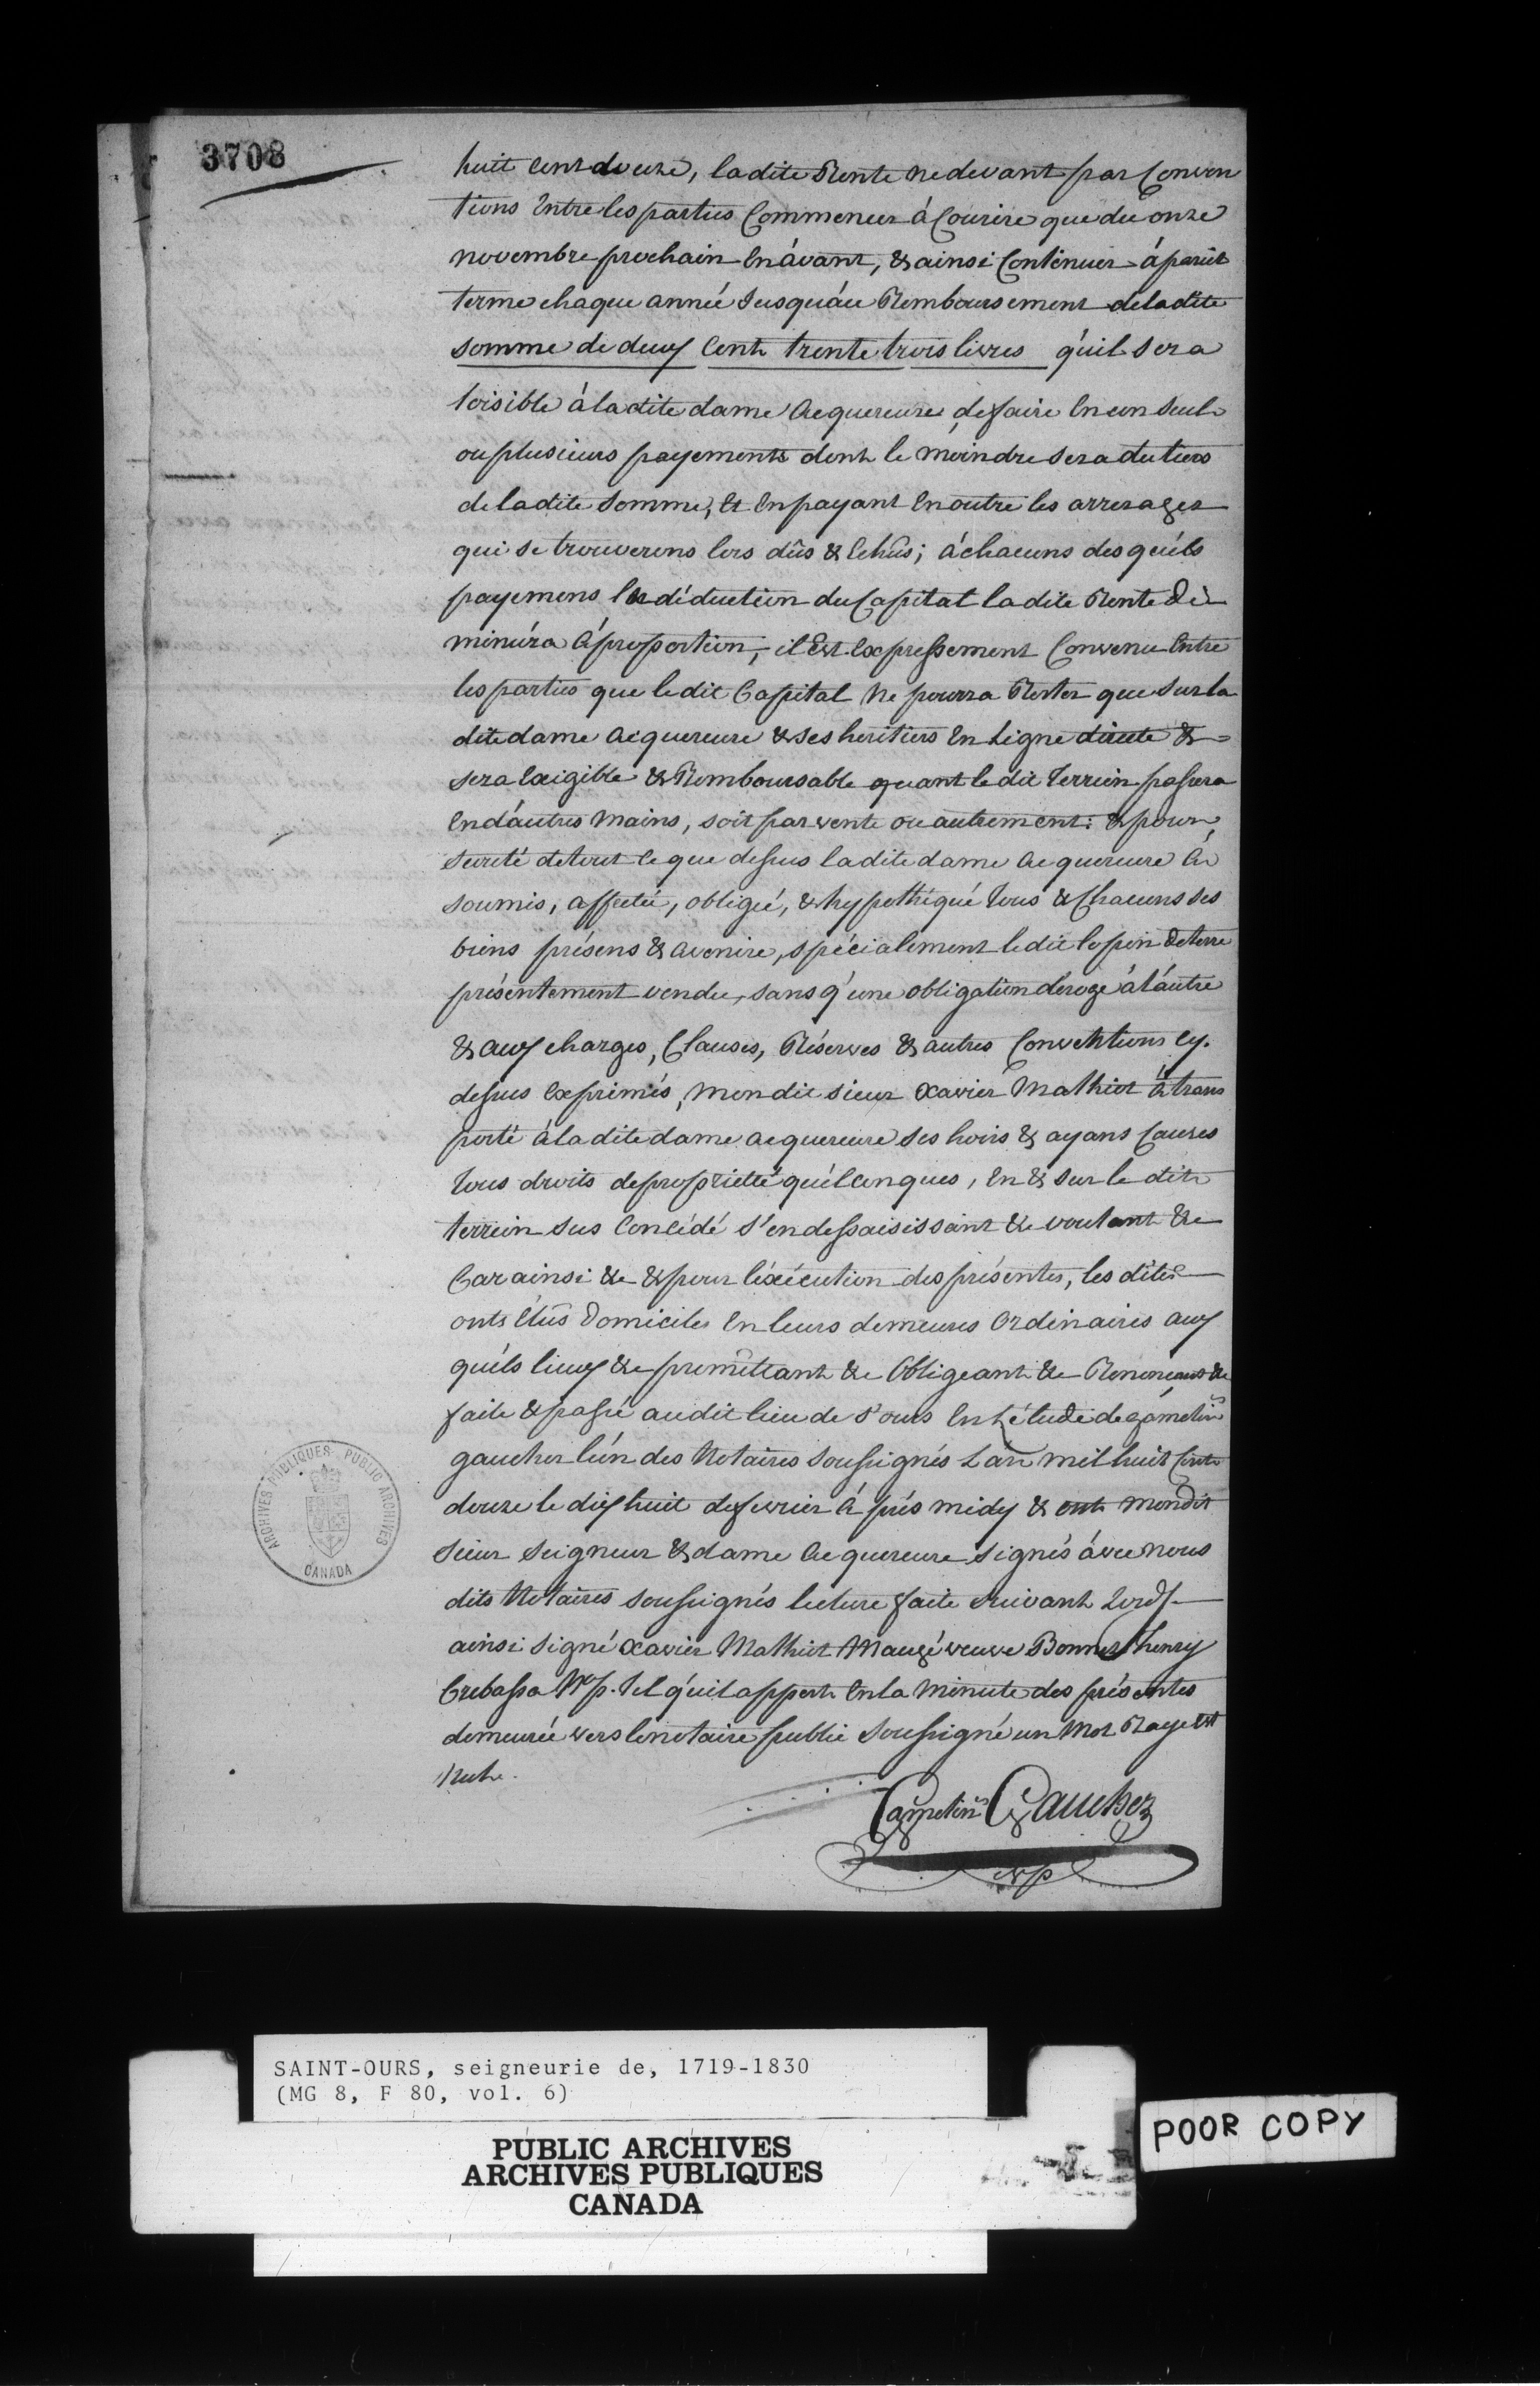 3708
huit cent douze, la dite Rente ne devant par Conven
tions Entre les parties Commencer à Courire que du onze
novembre prochain En àvant, & ainsi Continuer à pareil
terme chaque année Jusqu'àu Remboursement de la dite
somme de deux Cent trente trois livres qu'il sera
loisible à la dite dame Acquereure, de faire En un seul
ou plusieurs payements dont le moindre sera du tiers
de la dite somme, Et En payant En outre les arrerages
qui se trouverons lors dûs & Echûs; à chacuns desquéls
payemens En déduction du Capital la dite Rente Di
minura à proportion; il Est Expressement Convenu Entre
les parties que le dit Capital Ne pourra Rester que sur la
dite dame Acquereure & ses heritiers En Ligne directe &
sera Exigible & Remboursable quant le dit Terrein passera
En d'àutres mains, soit par vente ou autrement: & pour
sureté de tout Ce que dessus la dite dame Acquereure à
soumis, affectée, obligé, & hypothéqué Tous & Chacuns ses
biens présens & avenire, spécialement le dit lopin de terre
présentement vendu, sans q'une obligation déroge à l'àutre
& aux charges, Clauses, Réserves & autres Conventions Cy.
dessus Exprimés, mon dit sieur Xavier Mathiot à trans
porté à la dite dame acquereure ses hoirs & ayans Causes
Tous droits de propriétté quélconques, En & sur le dit
terrein sus Concédé s'en dessaisissant &c voulant &c
Car ainsi &c & pour l'éxécution des présentes, les dites
onts Elûs Domiciles En leurs demeures Ordinaires aux
quéls lieux &c promettant &c Obligeant &c Renonceant &c
faite & passé au dit lieu de St ours En L'étude de gamelin
gaucher l'ún des Notaires soussignés L'an mil huit Cent
douze le dix huit de fevrier à près midy & ont mondit
sieur seigneur & dame Acquereure signés àvec nous
dits Notaires soussignés lecture faite suivant L'ord.
ainsi signé Xavier Mathiot Maugé veuve Bonnet henry
Crebassa N.p. Tel qu'il appert En la Minute des présentes
demeurée vers le notaire public soussigné un Mot Raye Est
Nul.
Gamelin Gaucher
N.p
ARCHIVES PUBLIQUES PUBLIC ARCHIVES
CANADA
SAINT-OURS, seigneurie de, 1719-1830
(MG 8, F 80, vol. 6)
PUBLIC ARCHIVES
ARCHIVES PUBLIQUES
CANADA
POOR COPY